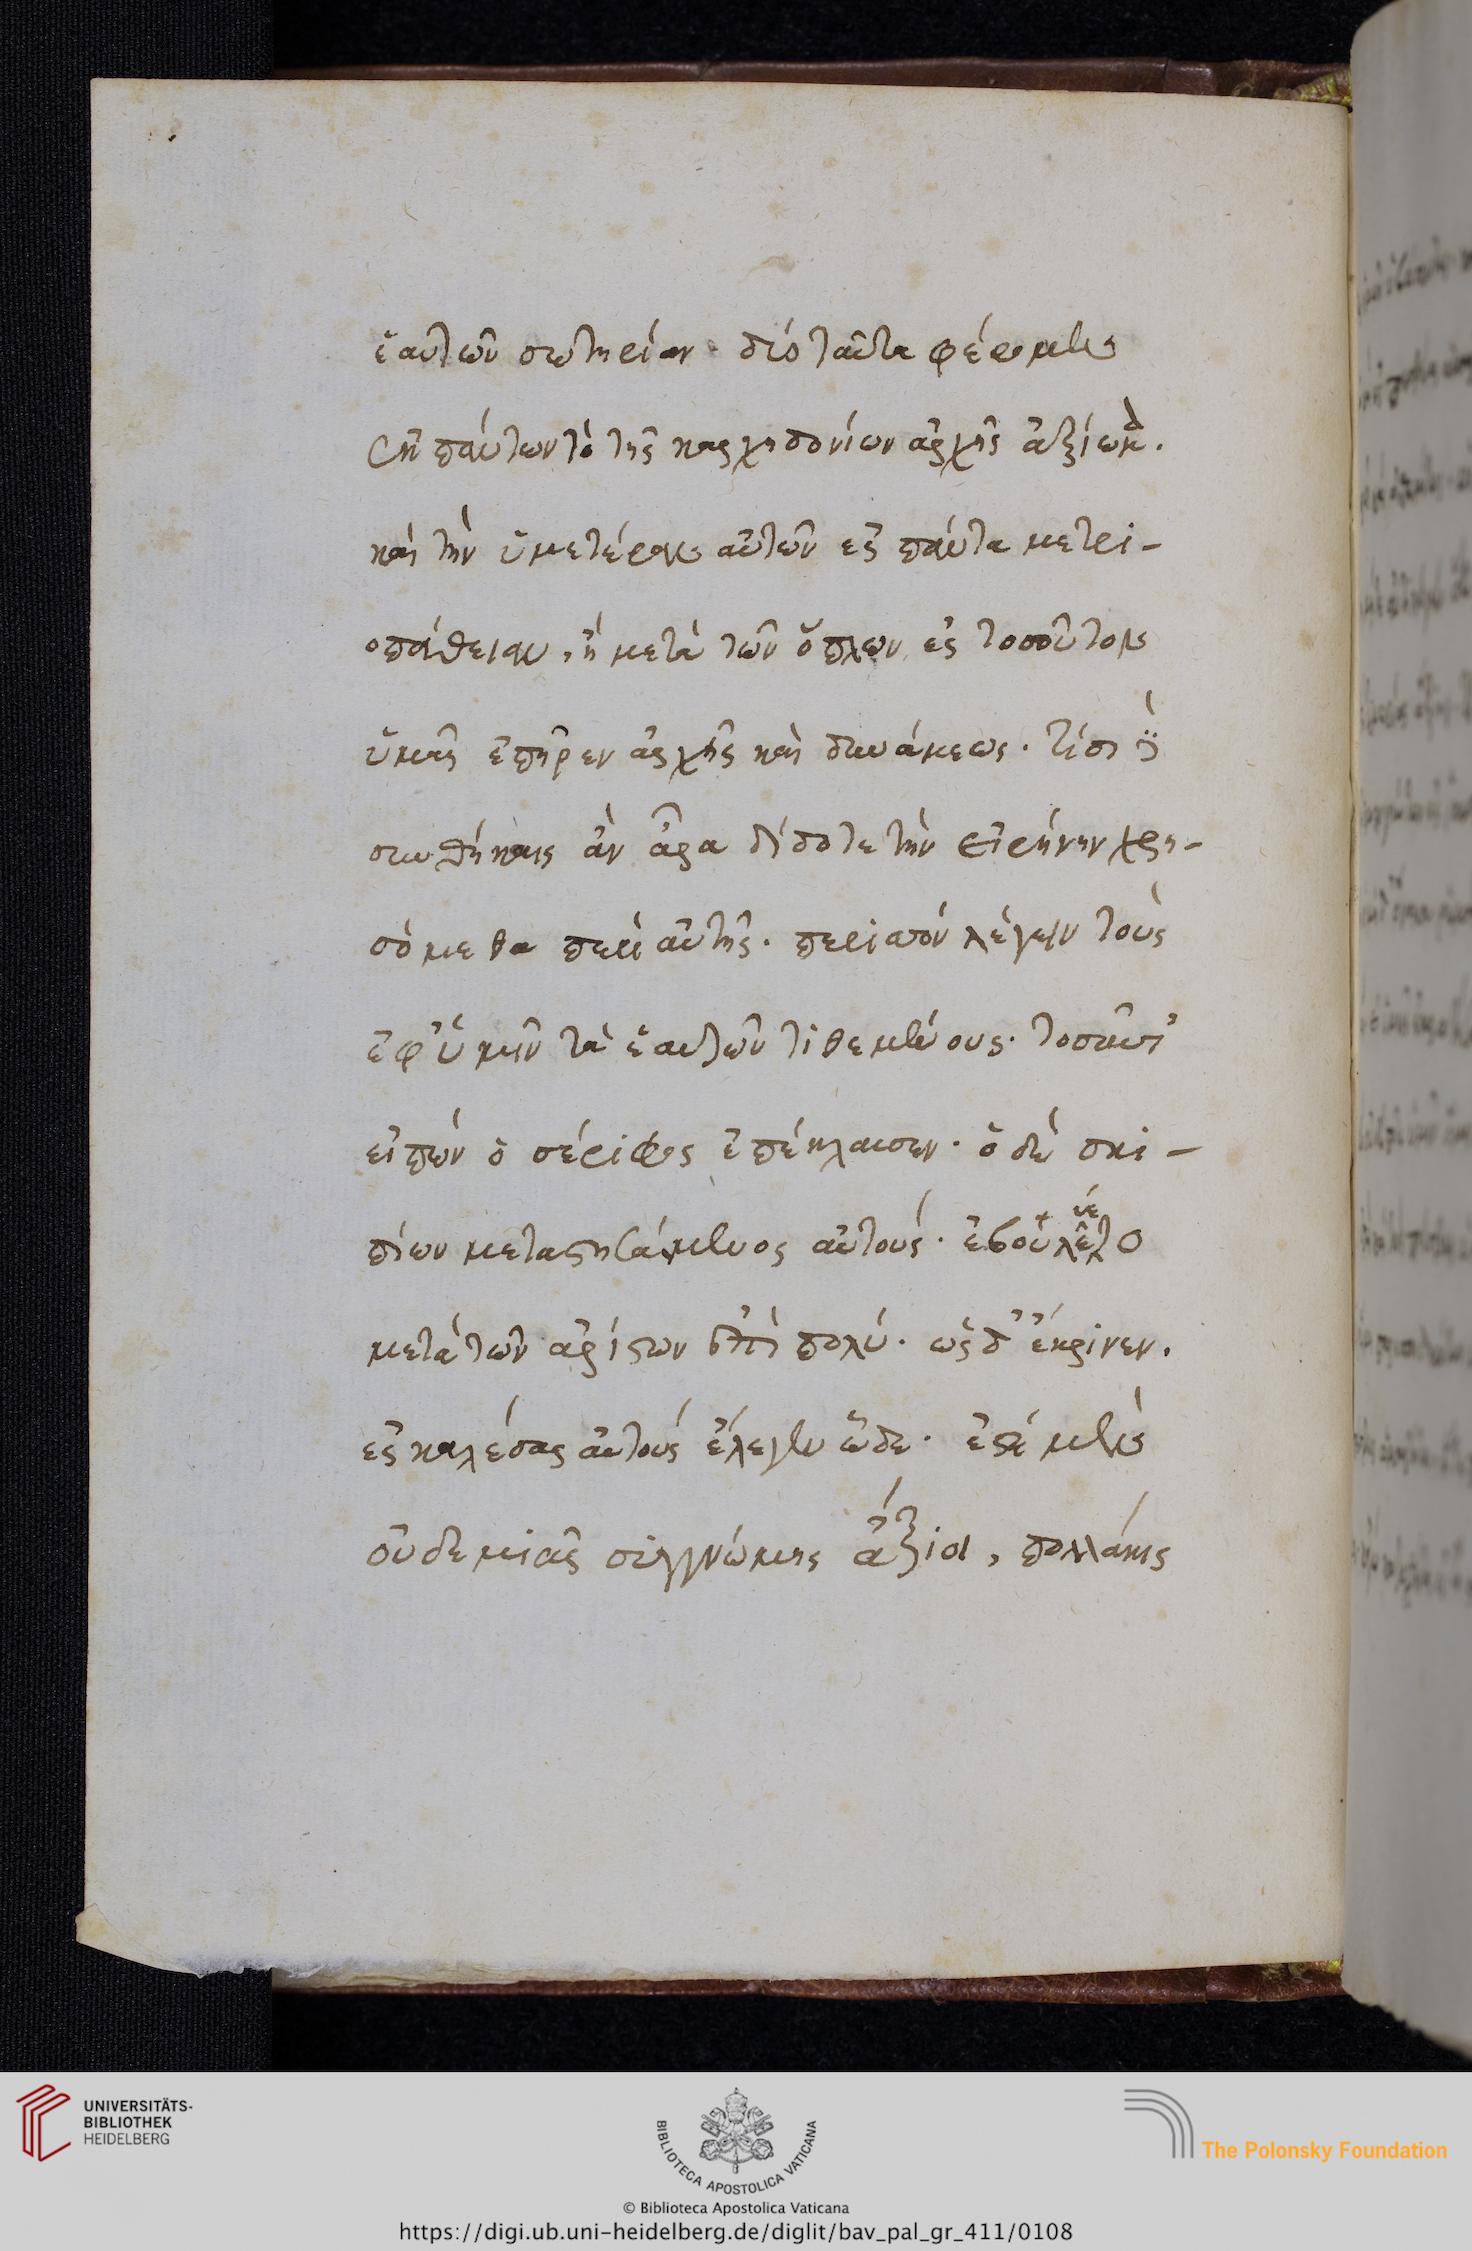 ἑαυτῶν σωτηρίαν· διὸ ταῦτα φέρομεν
σκήπτων τὸ τῆς καρχηδονίων ἀρχῆς ἀξίωμα.
καὶ τὴν ὑμετέραν αὐτῶν ἐς πάντα μετρι-
οπάθειαν, ἣ μετὰ τῶν ὅπλων ἐς τοσοῦτον
ὑμᾶς ἐπῆρεν ἀρχῆς καὶ δυνάμεως. τίσι δὲ
συνθήκαις ἂν ἄρα δίδοτε τὴν εἰρήνην χρη-
σόμεθα περὶ αὐτῆς. περισσὸν λέγειν τοὺς
ἐφ' ὑμῖν τὰ ἑαυτῶν τιθεμένους· τοσαῦτ'
εἰπὼν ὁ σέριφος ἐπέκλαυσεν· ὁ δὲ σκι-
πίων μεταστησάμενος αὐτούς· ἐβουλεύετο
μετὰ τῶν ἀρίστων ἐπὶ πολύ· ὡς δ' ἔκρινεν.
ἐσκαλέσας αὐτοὺς ἔλεγεν ὧδε· ἐστέ μὲν
οὐδεμιᾶς συγγνώμης ἄξιοι, πολλάκις
UNIVERSITÄTS-
BIBLIOTHEK
HEIDELBERG
BIBLIOTECA APOSTOLICA VATICANA
The Polonsky Foundation
© Biblioteca Apostolica Vaticana
https://digi.ub.uni-heidelberg.de/diglit/bav_pal_gr_411/0108